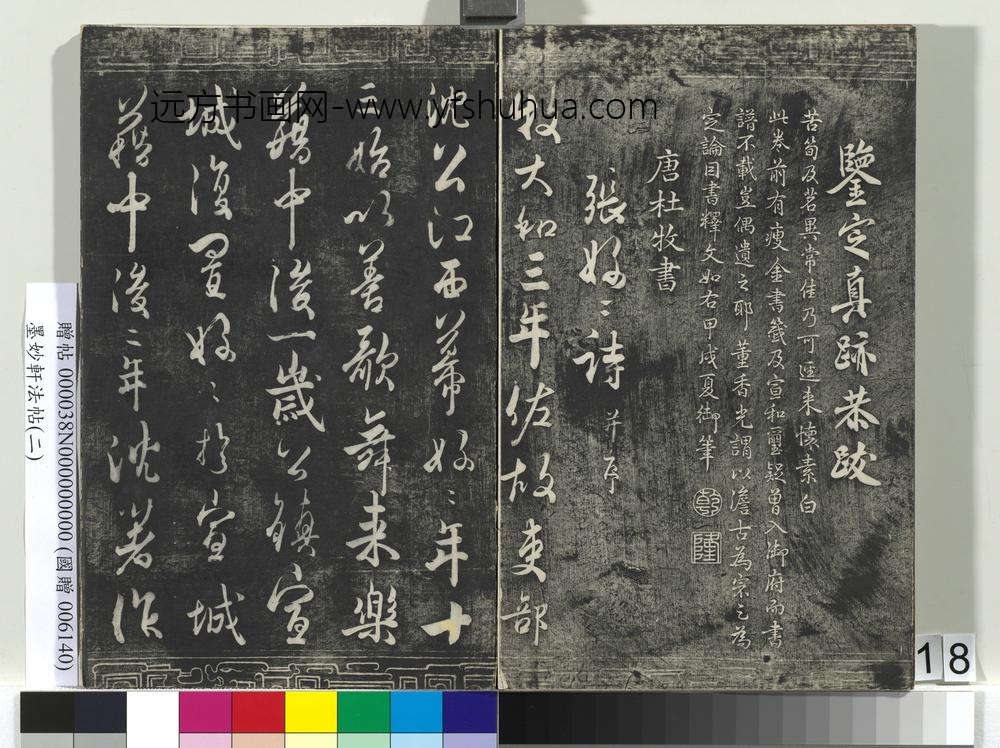 鑒定真跡恭跋
苦筍及茗異常佳乃可逕來懷素白
此卷前有瘦金書籤及宣和璽疑曾入御府而書
譜不載豈偶遺之耶董香光謂以澹古為宗之為
定論因書釋文如右甲戌夏御筆
乾隆
唐杜牧書
張好〻詩并序
牧大和三年佐故吏部
沈公江西幕好〻年十
三始以善歌舞来樂
籍中後一歲公鎮宣
城復置好〻於宣城
籍中後二年沈著作
远方书画网-www.yfshuhua.com
贈帖 000038N000000000 (國贈 006140)
墨妙軒法帖(二)
18